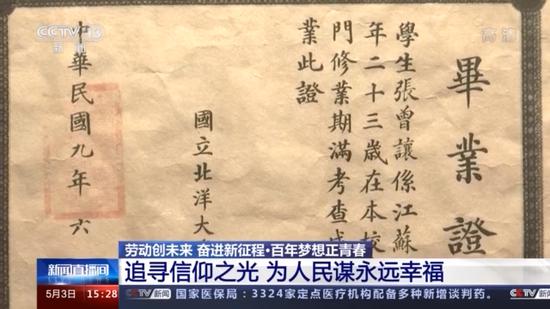 CCTV 13
新闻
高清
畢業證
學生張曾讓係江蘇
年二十三歲在本校
門修業期滿考查成
業此證
國立北洋大
中華民國九年六
劳动创未来 奋进新征程·百年梦想正青春
新闻直播间
追寻信仰之光 为人民谋永远幸福
5月3日 15:28 CCTV新闻 国家医保局：3324家定点医疗机构配备多种新增谈判药。 CCTV新闻